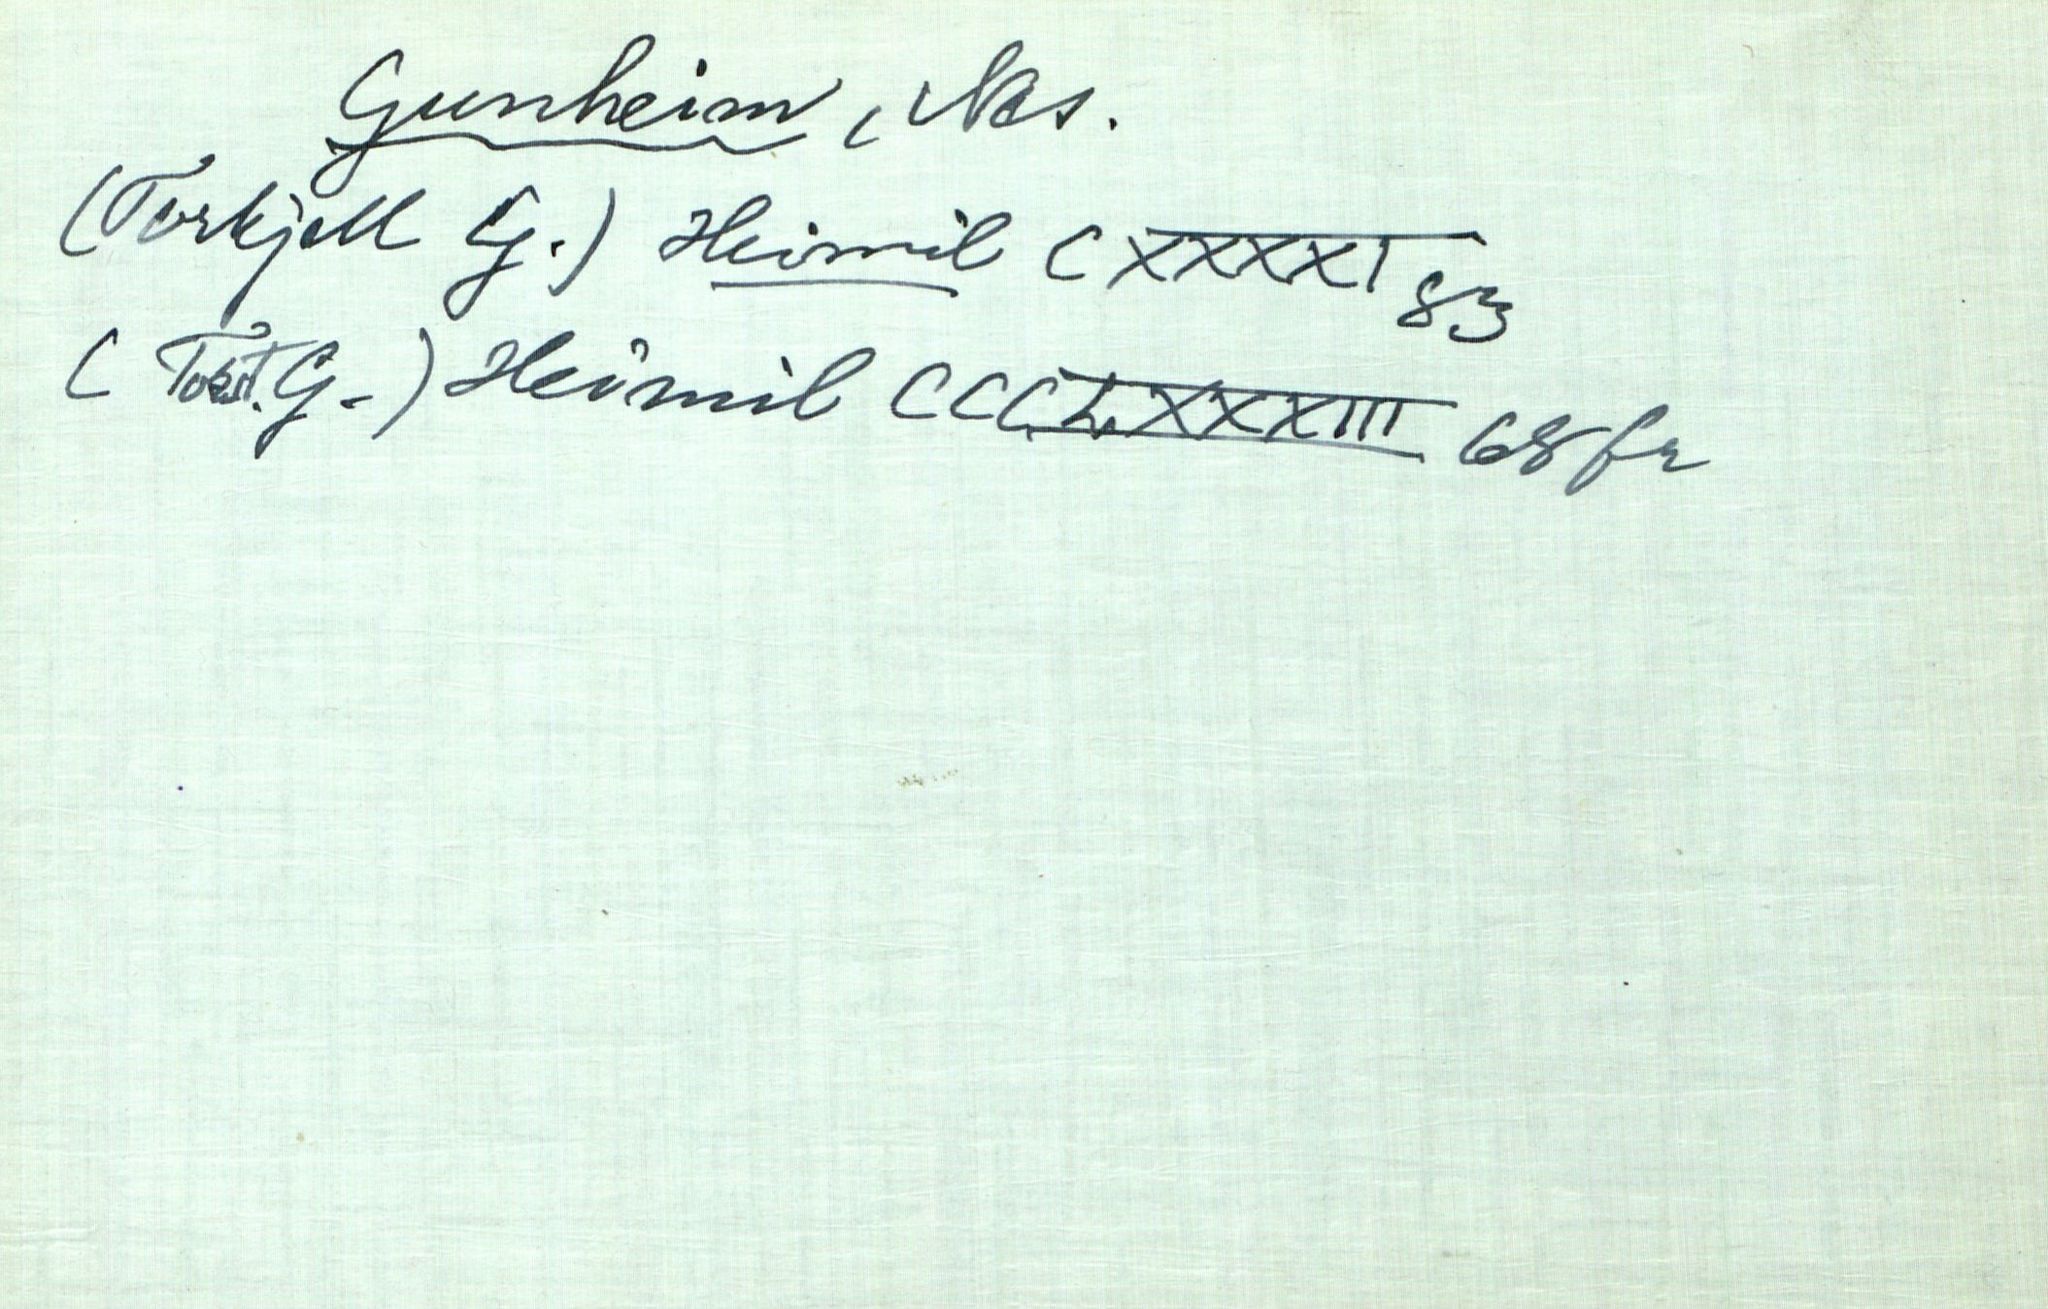 Gunheim, Nes.
(Torkjell G.) Heimil CXXXXI 83
( G.) Heimil CCCLXXXIII 68 fr